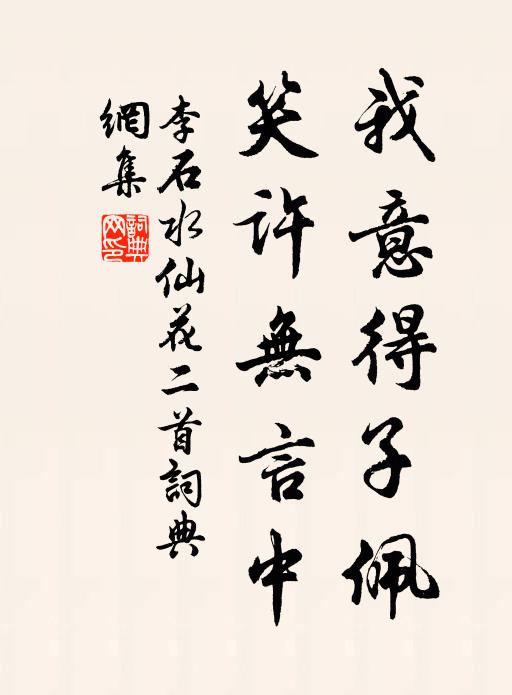 我意得子佩
笑許無言中
李石水仙花二首詞典
網集
詞典
网印